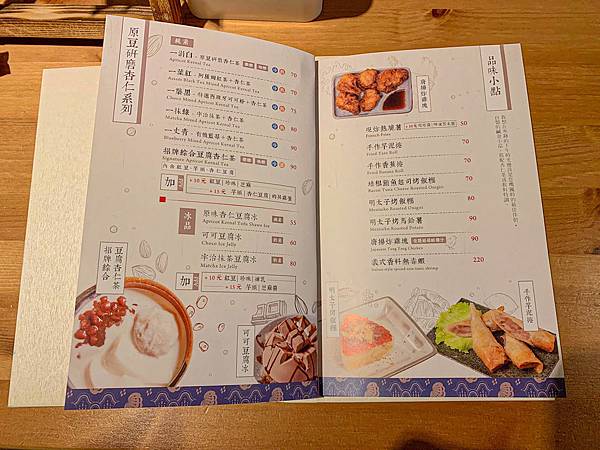 原豆研磨杏仁系列
一清白・原豆研磨杏仁茶 70
Apricot Kernal Tea
一葉紅・阿薩姆紅茶+杏仁茶 70
Assam Black Tea Mixed Apricot Kernal Tea
Choco Mixed Apricot Kernal Tea
一抹綠・宇治抹茶+杏仁茶
Matcha Mixed Apricot Kernal Tea 80
一丈青・有機藍莓+杏仁茶
Blueberry Mixed Apricot Kernal Tea 90
招牌綜合豆腐杏仁茶 90
Signature Apricot Kernal Tea
內含紅豆・芋頭・杏仁豆腐
加
+10元 紅豆|珍珠|芝麻
冰品
原味杏仁豆腐冰 55
Apricot Kernal Tofu Shaw Ice
可可豆腐冰 60
Choco Ice Jelly
宇治抹茶豆腐冰 80
Matcha Ice Jelly
加
+10元 紅豆|珍珠|煉乳
+15元 芋頭|芝麻醬
招牌綜合
豆腐杏仁茶
可可豆腐冰
品味小點
唐揚炸雞塊
現炸熱脆薯 50
French Fries
手作芋泥捲 70
Fried Taro Roll
手作香蕉捲 70
Fried Banana Roll
培根鮪魚起司烤飯糰 70
Bacon Tuna Cheese Roasted Onigiri
明太子烤飯糰 70
Mentaiko Roasted Onigiri
明太子烤馬鈴薯 70
Mentaiko Roasted Potato
唐揚炸雞塊 90
義式香料熱壺蝦 220
Italian-style spiced oven-roast shrimp
明太子烤飯糰
手作芋泥捲